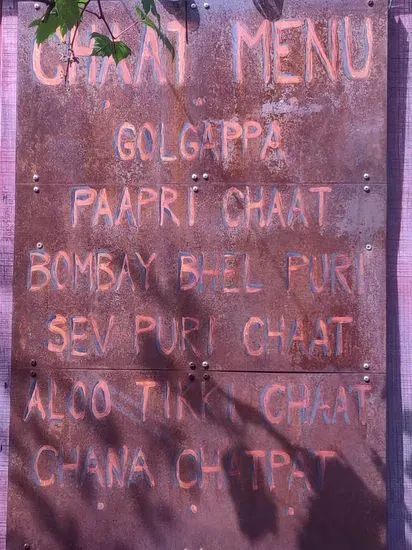 CHAAT MENU
GOLGAPPA
PAAPRI CHAAT
BOMBAY BHEL PURI
SEV PURI CHAAT
ALOO TIKKI CHAAT
CHANA CHATPAT